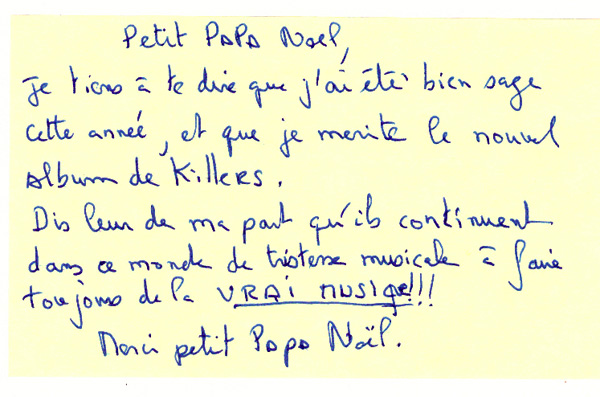 Petit PAPA Noel,
Je tiens à te dire que j'ai été bien sage
cette année, et que je merite le nouvel
Album de Killers.
Dis leur de ma part qu'ils continuent
dans ce monde de tristesse musicale à faire
toujours de la VRAI MUSIQUE!!!
Merci petit Papa Noël.